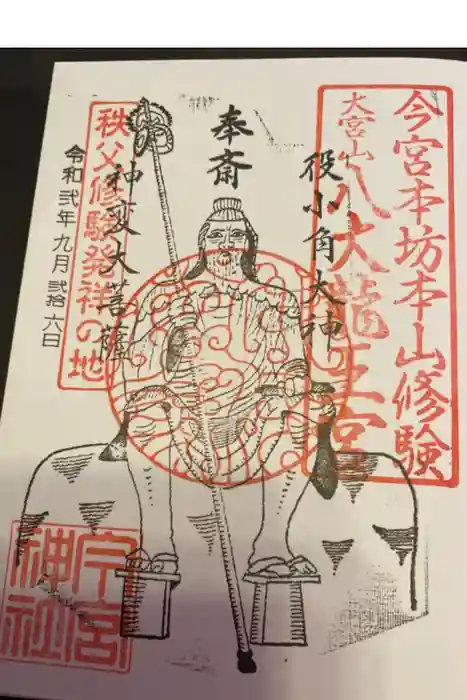 今宮本坊本山修験
大宮山
八大龍王宮
役小角大神
奉斎
神変大菩薩
秩父修験発祥の地
令和弐年九月弐拾六日
今宮
神社